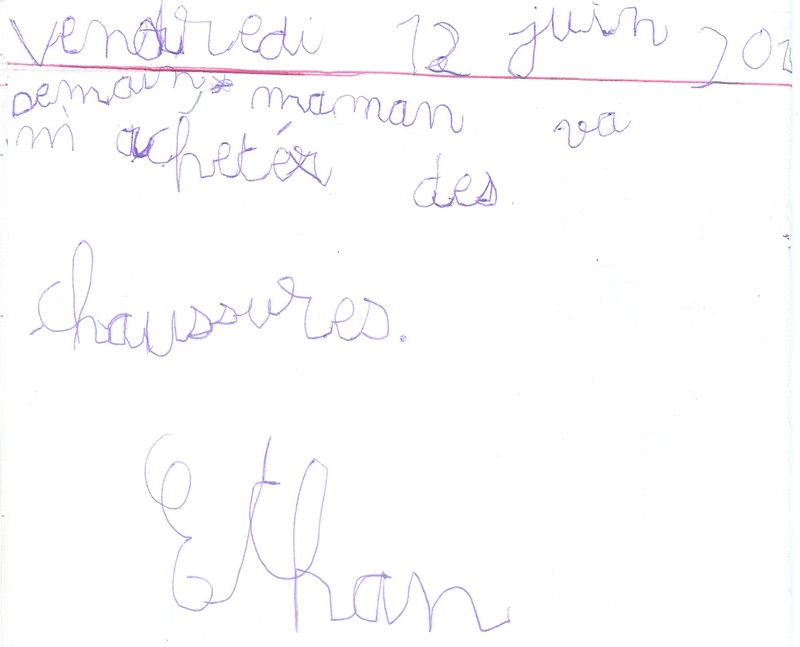 Vendredi 12 juin 201
Demain maman va
m'achetér des
chaussures.
Ethan